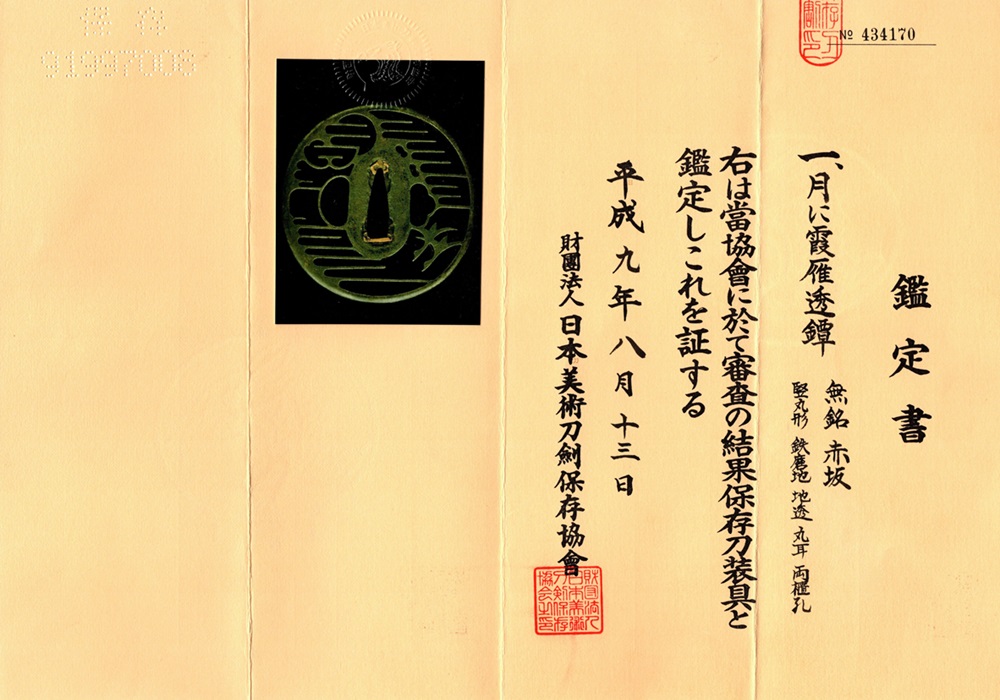 № 434170
鑑定書
一、月に霞雁透鐔
無銘 赤坂
竪丸形 鉄磨地 地透 丸耳 両櫃孔
右は當協會に於て審査の結果保存刀装具と
鑑定しこれを証する
平成九年八月十三日
財團法人 日本美術刀劍保存協會
財団法人
日本美術
刀剣保存
協会之印
保存
91997008